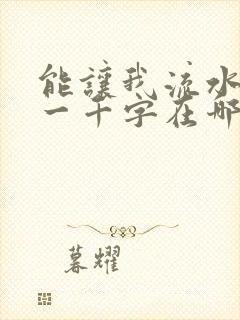 能讓我流水
一千字在哪
暮耀